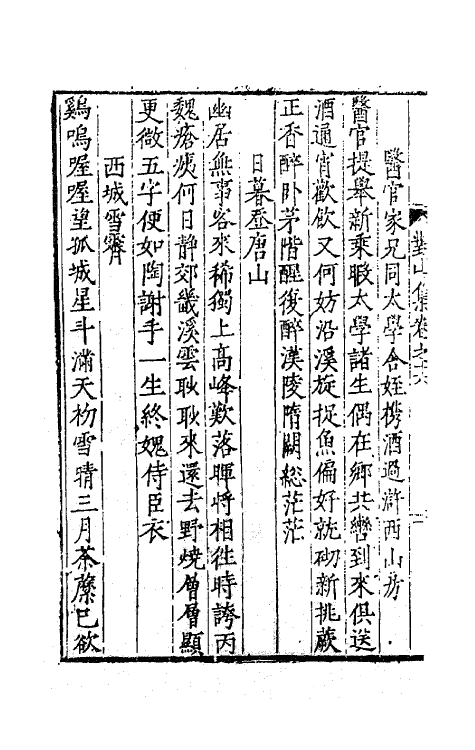 對山集卷之六
醫官家兄同太學合姪携酒過滸西山房
醫官提舉新乘暇太學諸生偶在鄉共轡到來俱送
酒通宵歡飲又何妨沿溪旋捉魚偏好就砌新挑蕨
正香醉卧茅階醒復醉漢陵隋闕総茫茫
日暮登唐山
幽居無事客來稀獨上高峰歎落暉將相往時誇丙
魏瘡痍何日靜郊畿溪雲耿耿來還去野燒層層顯
更微五字便如陶謝手一生終媿侍臣衣
西城雪霽
鷄鳴喔喔望孤城星斗滿天初雪晴三月荼蘼巳欲